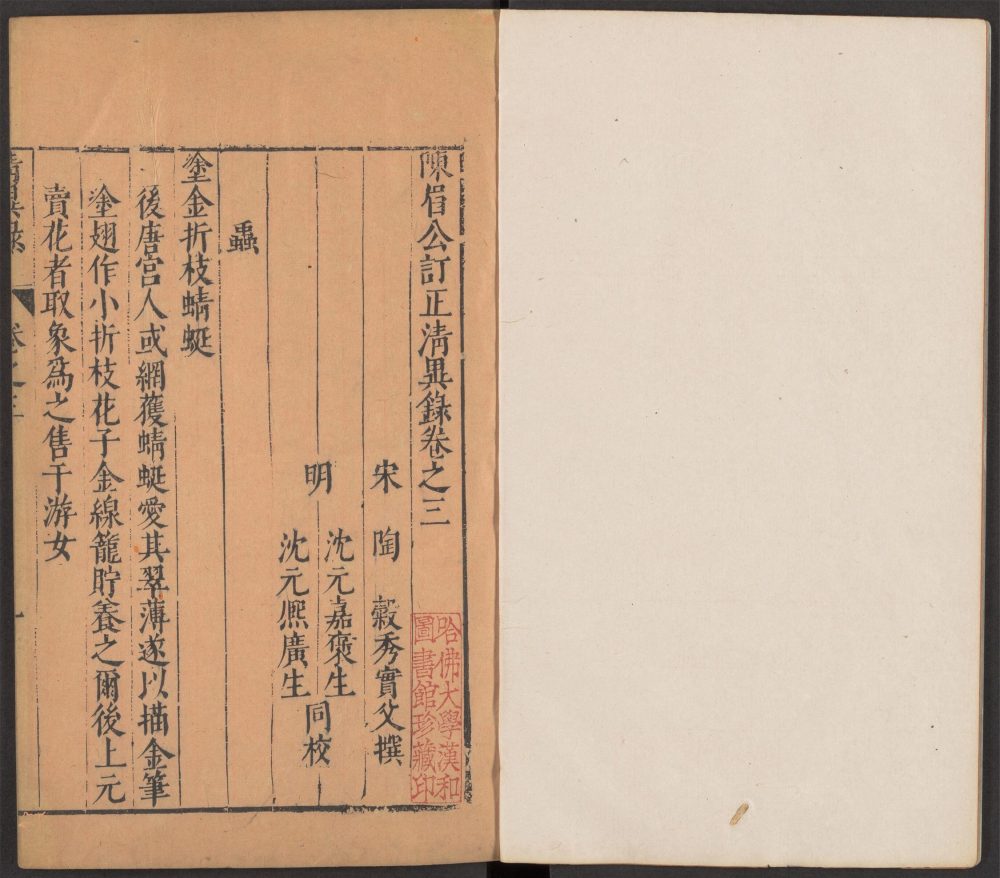 陳眉公訂正清異錄卷之三
宋 陶 穀秀實父撰
明 沈元嘉褒生
沈元熈廣生
同校
蟲
塗金折枝蜻蜓
後唐宮人或網獲蜻蜓愛其翠薄遂以描金筆
塗翅作小折枝花子金線籠貯養之爾後上元
賣花者取象爲之售于游女
清異錄
卷之三
一
哈佛大學漢和
圖書館珍藏印